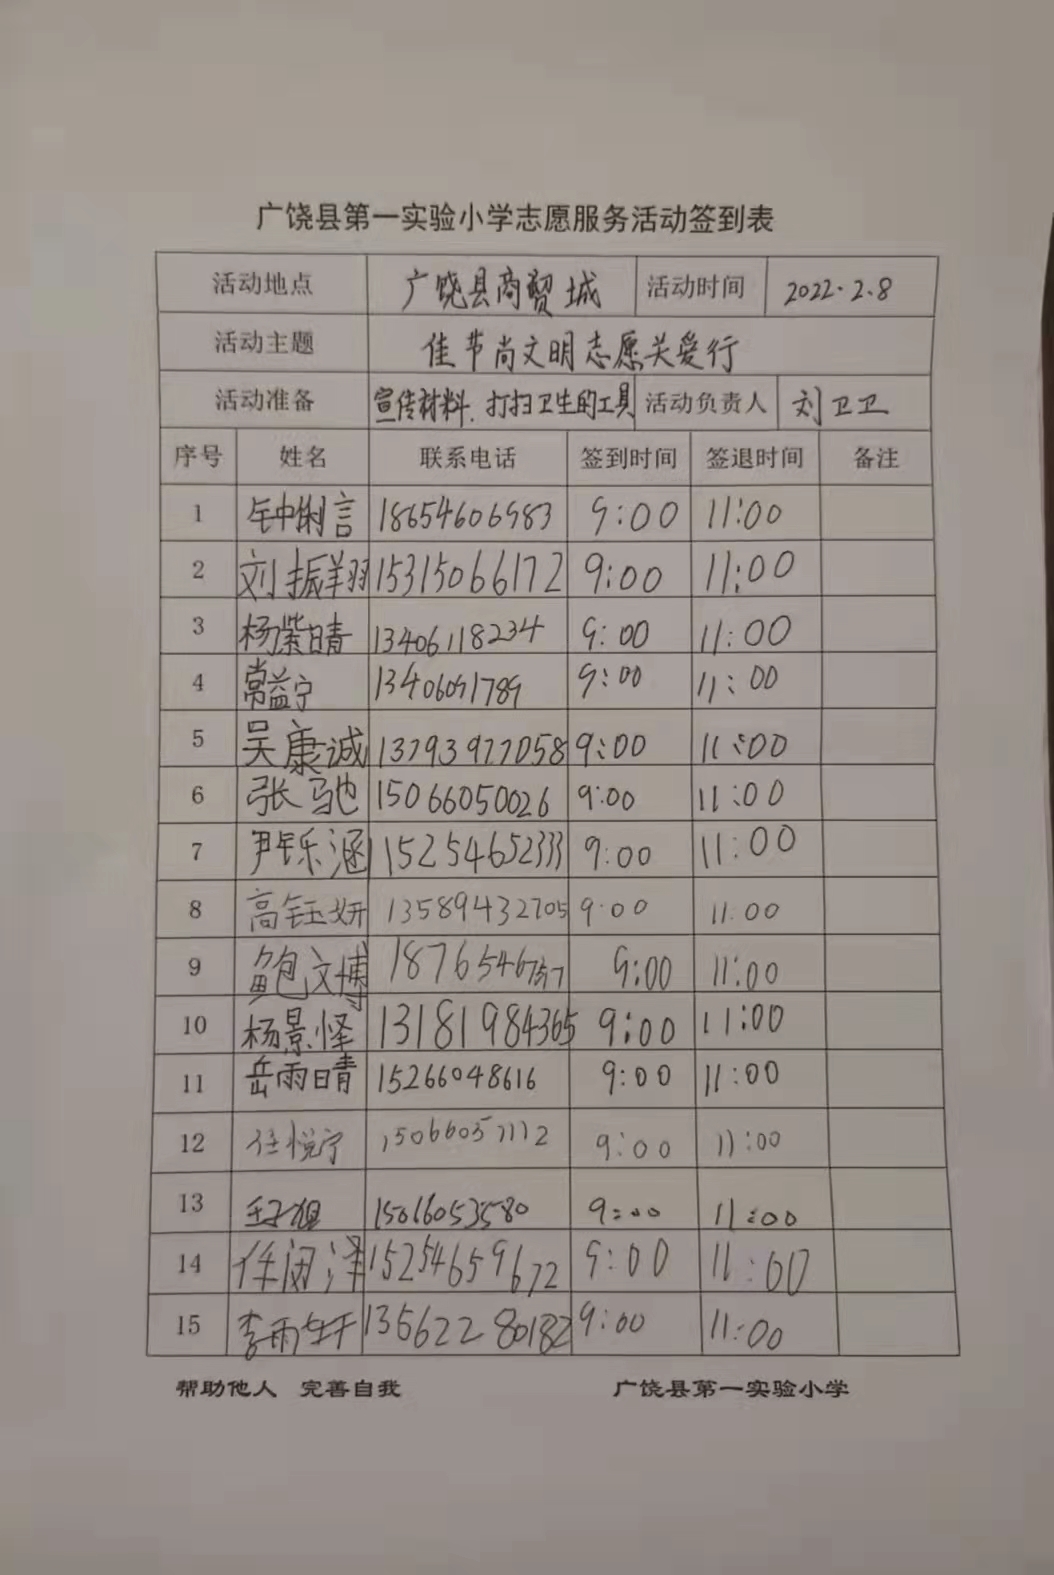 广饶县第一实验小学志愿服务活动签到表
活动地点 广饶县商贸城 活动时间 2022.2.8
活动主题 佳节尚文明志愿关爱行
活动准备 宣传材料、打扫卫生的工具 活动负责人 刘卫卫
序号 姓名 联系电话 签到时间 签退时间 备注
1 钟俐言 18654606983 9:00 11:00
2 刘振翔 15315066172 9:00 11:00
3 杨紫晴 13406118234 9:00 11:00
4 常益宁 13406091789 9:00 11:00
5 吴康诚 13793977058 9:00 11:00
6 张驰 15066050026 9:00 11:00
7 尹铄涵 15254652333 9:00 11:00
8 高钰妍 13589432705 9:00 11:00
9 鲍文博 9:00 11:00
10 杨景怿 13181984365 9:00 11:00
11 岳雨晴 15266048616 9:00 11:00
12 任悦宁 9:00 11:00
13 9:00 11:00
14 任闵泽 15254659672 9:00 11:00
15 李雨轩 13562280182 9:00 11:00
帮助他人 完善自我 广饶县第一实验小学